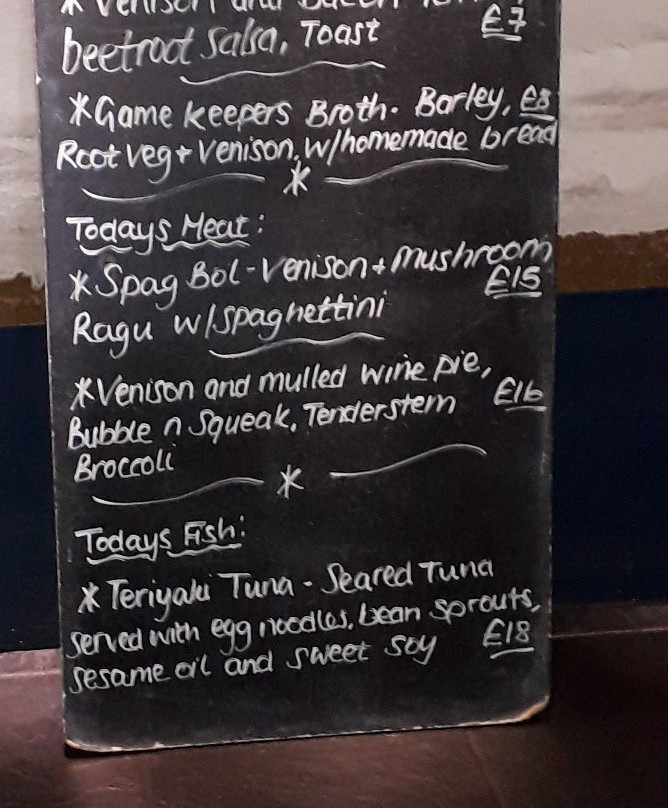 * Venison and Bacon
£7
beetroot salsa, Toast
*Game keepers Broth. Barley, £8
Root veg + venison, w/homemade bread
*
Todays Meat:
*Spag Bol - Venison + Mushroom
£15
Ragu w/spaghettini
*Venison and mulled wine pie,
£16
Bubble n Squeak, Tenderstem
Broccoli
*
Todays Fish:
* Teriyaki Tuna - Seared Tuna
served with egg noodles, bean sprouts,
£18
sesame oil and sweet soy